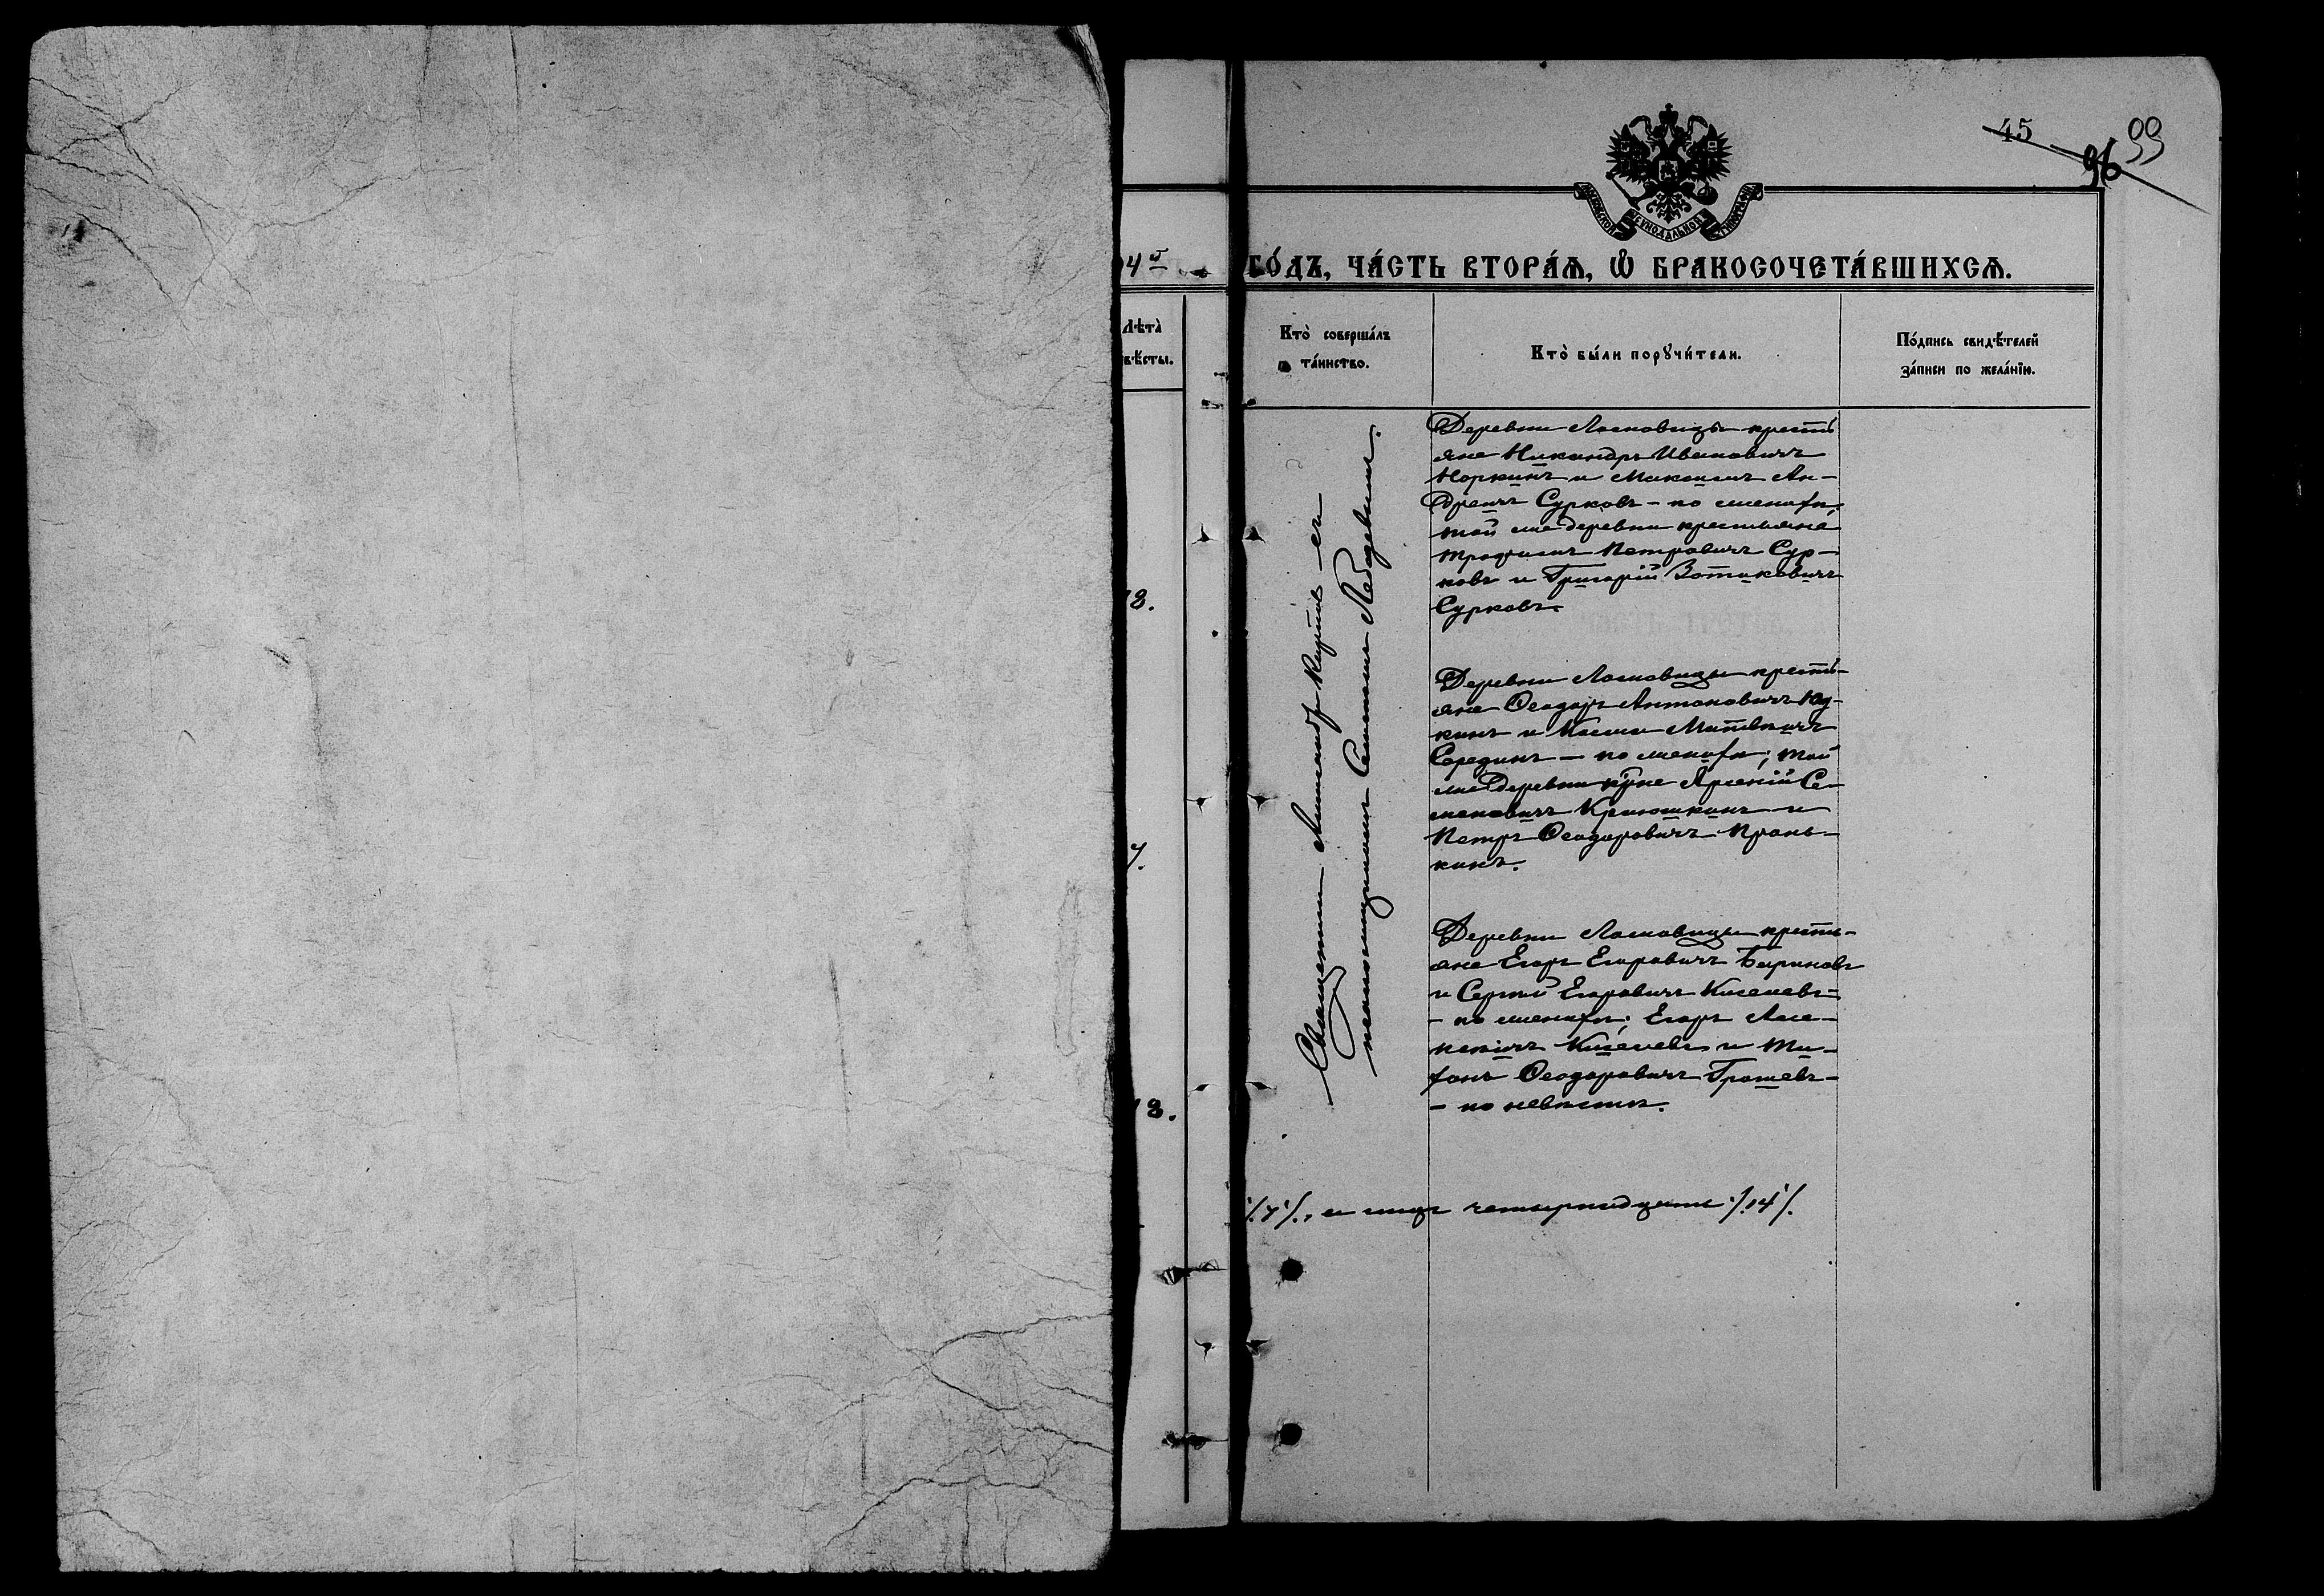 45
96
99
МОСКОВСКОЙ СѴНОДАЛЬНОЙ ТИПОГРАФІИ
04 г
ГО́ДЪ, ЧА́СТЬ ВТОРА́Ѧ, Ѡ҆ БРАКОСОЧЕТА́ВШИХСѦ.
Лѣта̀
вѣ́сты.
Кто̀ соверша́лъ
та́инство.
Кто̀ бы́ли порꙋчи́тели.
По́дпись свидѣ́телей
за́писи по жела́нїю.
18.
7.
18.
Священникъ Александр съ
псаломщикомъ Лебедевымъ.
Деревни Ласковицы кресть
яне Никандръ Ивановичъ
Норкинъ и Максимъ Ан-
дреичъ Сурковъ - по женихѣ,
той же деревни крестьяне
Трофимъ Петровичъ Сур-
ковъ и Григорій Зотиковичъ
Сурковъ.
Деревни Ласковицы кресть-
яне Ѳеодоръ Антоновичъ Юд-
кинъ и Косма Матвѣичъ
Серединъ - по женихѣ; той
же деревни кр̃не Арсеній Се-
меновичъ Крюшкинъ и
Петръ Ѳеодоровичъ Прань-
кинъ.
Деревни Ласковицы кресть-
яне Егоръ Егоровичъ Бариновъ
и Сергій Егоровичъ Киселевъ
- по женихѣ; Егоръ Але-
ксѣичъ Киселевъ и Ти-
хонъ Ѳеодоровичъ Грошевъ -
- по невѣстѣ.
/.7/., а лицъ четырнадцать /.14/.